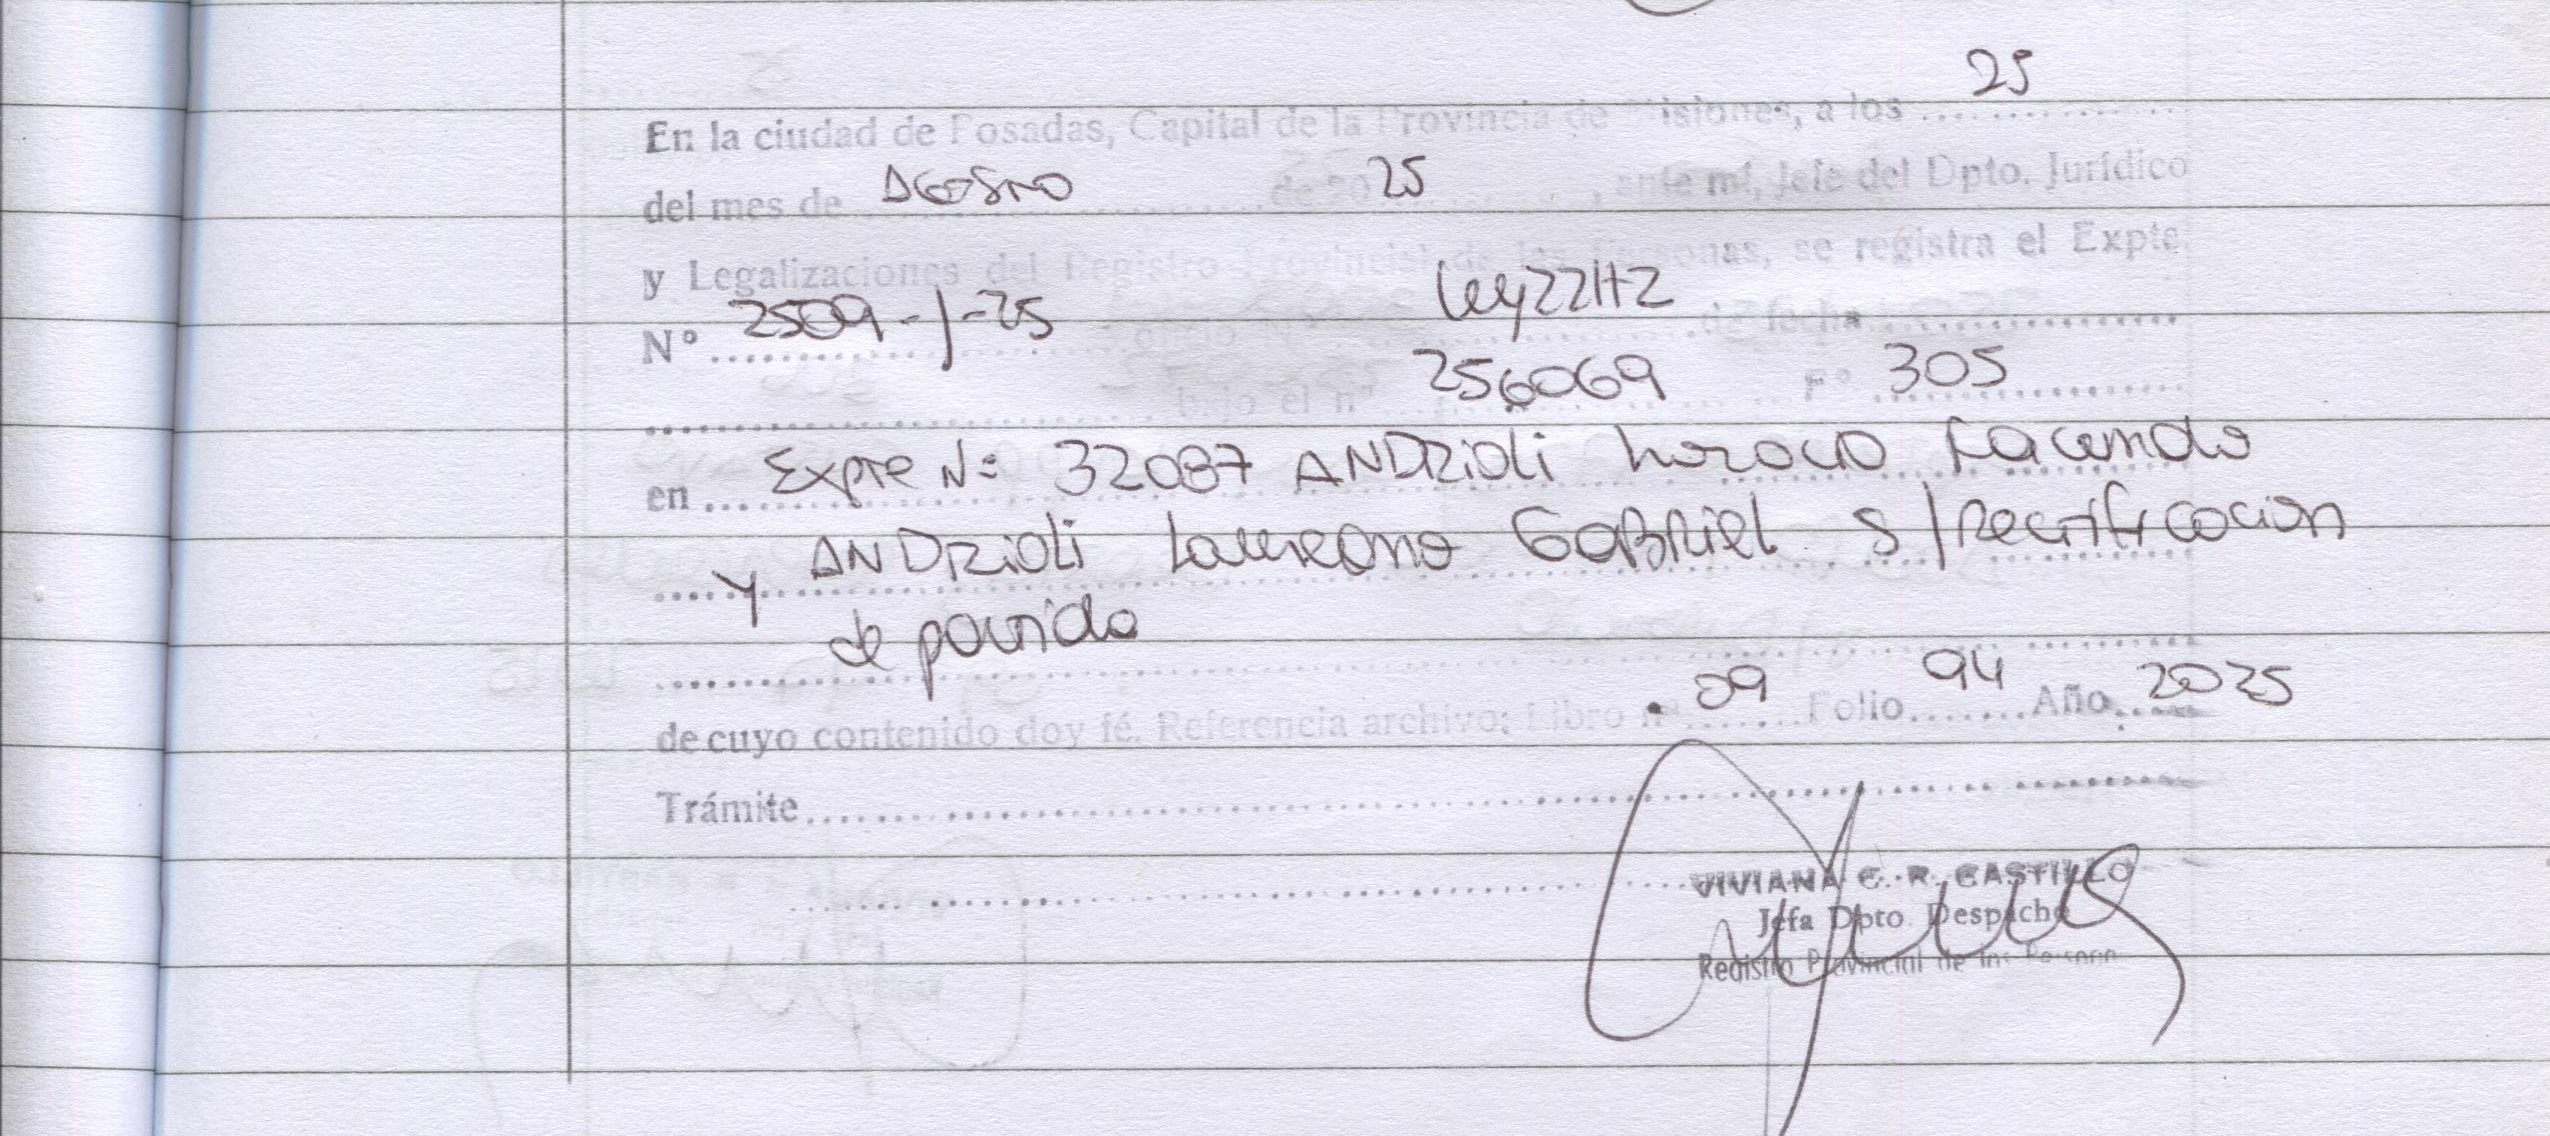 25
En la ciudad de Posadas, Capital de la Provincia de Misiones, a los ..............
del mes de AGOSTO de 20 25, ante mí, Jefe del Dpto. Jurídico
y Legalizaciones del Registro Provincial de las Personas, se registra el Expte.
Nº 2509-J-25 oficio Ley 22172 de fecha..............
bajo el nº 256069 Fº 305
en Expte Nº: 32087 ANDRIOLI Horacio Facundo
y ANDRIOLI Laureano GABRIEL S/ Rectificacion
de partida
de cuyo contenido doy fé. Referencia archivo: Libro nº 09 Folio 94 Año 2025
Trámite..............
VIVIANA C. R. CASTILLO
Jefa Dpto. Despacho
Registro Provincial de las Personas